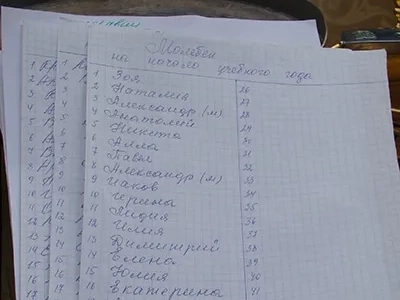 Молебен
на начало учебного года
1 Зоя 26
2 Наталия 27
3 Александр (м) 28
4 Анатолий 29
5 Никита 30
6 Алла 31
7 Павел 32
8 Александр (м) 33
9 Иаков 34
10 Ирина 35
11 Лидия 36
12 Илия 37
13 Димитрий 38
14 Елена 39
15 Юлия 40
16 Екатерина 41